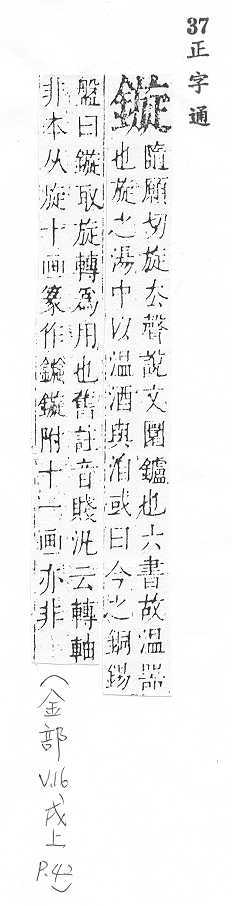 37 正字通
鏇
隨願切旋去聲說文圜鑪也六書故温器
也旋之湯中以温酒與洎或曰今之銅錫
盤曰鏇取旋轉為用也舊註音賤汎云轉軸
非本从旋十画篆作鏇附十一画亦非
(金部
V.16、戌上
P.42)